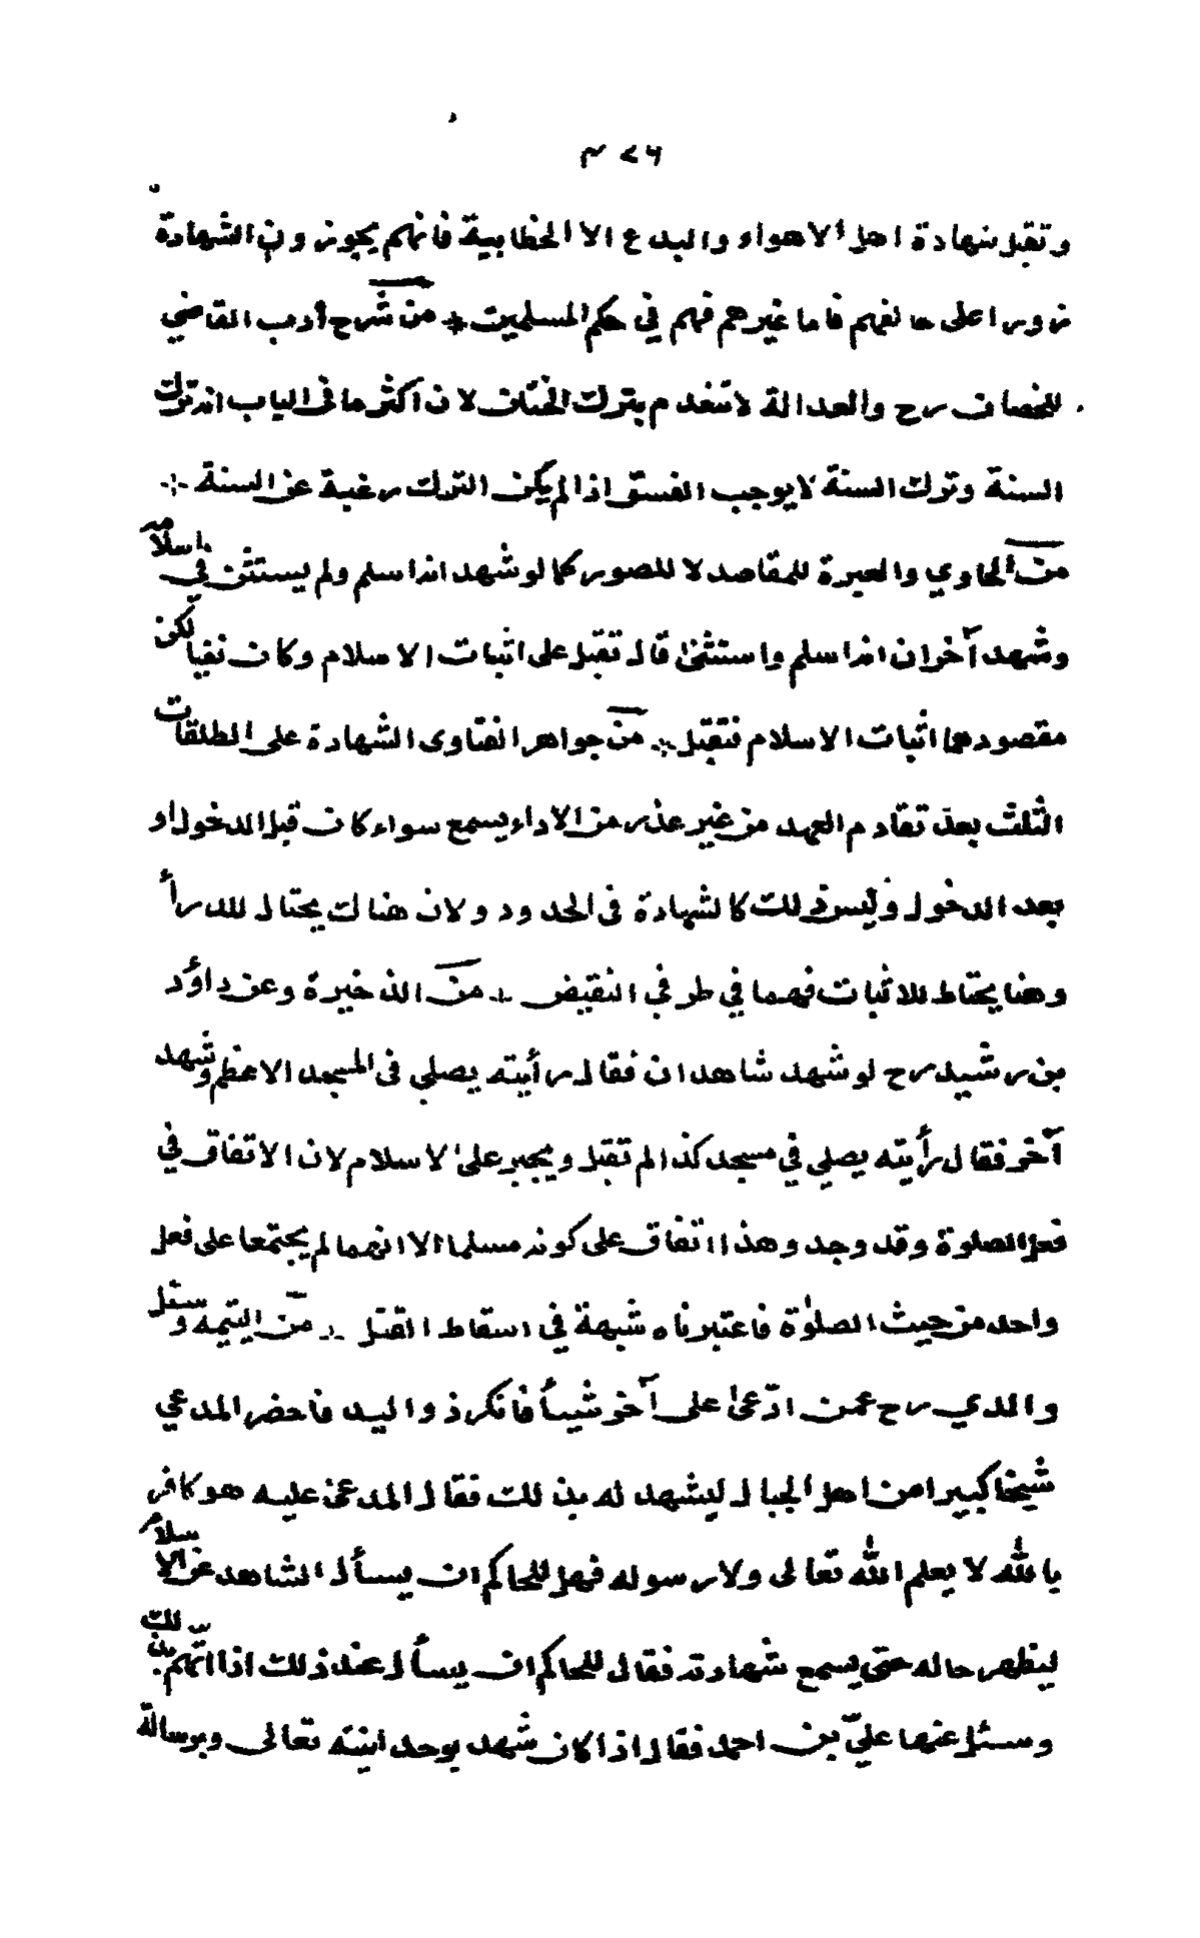 ٣٧٦
وتقبل شهادة اهل الاهواء والبدع الا الخطابية فانهم يجوزون الشهادة
زورا على مخالفهم فاما غيرهم فهم في حكم المسلمين * من شرح أدب القاضي
للخصاف رح والعدالة لا تنعدم بترك الختان لان اكثر ما فى الباب انه ترك
السنة وترك السنة لا يوجب الفسق اذا لم يكن الترك رغبة عن السنة *
من الحاوي والعبرة للمقاصد لا للصور كما لو شهد انه اسلم ولم يستثن في اسلامه
وشهد آخران انه اسلم واستثنى قال تقبل على اثبات الاسلام وكان نفيا لكن
مقصودهما اثبات الاسلام فتقبل * من جواهر الفتاوى الشهادة على المطلقات
الثلث بعد تقادم العهد من غير عذر من الاداء يسمع سواء كان قبل الدخول او
بعد الدخول وليس ذلك كالشهادة فى الحدود ولان هناك يحتال للدرأ
وهنا يحتاط للاثبات فهما في طرفي النقيض * من الذخيرة وعن داؤد
بن رشيد رح لو شهد شاهدان فقال رأيته يصلي فى المسجد الاعظم وشهد
آخر فقال رأيته يصلي في مسجد كذا لم تقبل ويجبر على الاسلام لان الاتفاق في
فعل الصلوة وقد وجد وهذا اتفاق على كونه مسلما الا انهما لم يجتمعا على فعل
واحد من حيث الصلوة فاعتبرناه شبهة في اسقاط القتل * من اليتيمة وسئل
والدي رح عمن ادّعى على آخر شيأ فانكر ذو اليد فاحضر المدعي
شيخا كبيرا من اهل الجبال ليشهد له بذلك فقال المدعى عليه هو كافر
بالله لا يعلم الله تعالى ولا رسوله فهل للحاكم ان يسأل الشاهد عن الاسلام
ليظهر حاله حتى يسمع شهادته فقال للحاكم ان يسأل عنه ذلك اذا اتّهم بذلك
وسئل عنها عليّ بن احمد فقال اذا كان شهد بوحدانيته تعالى وبرسالة